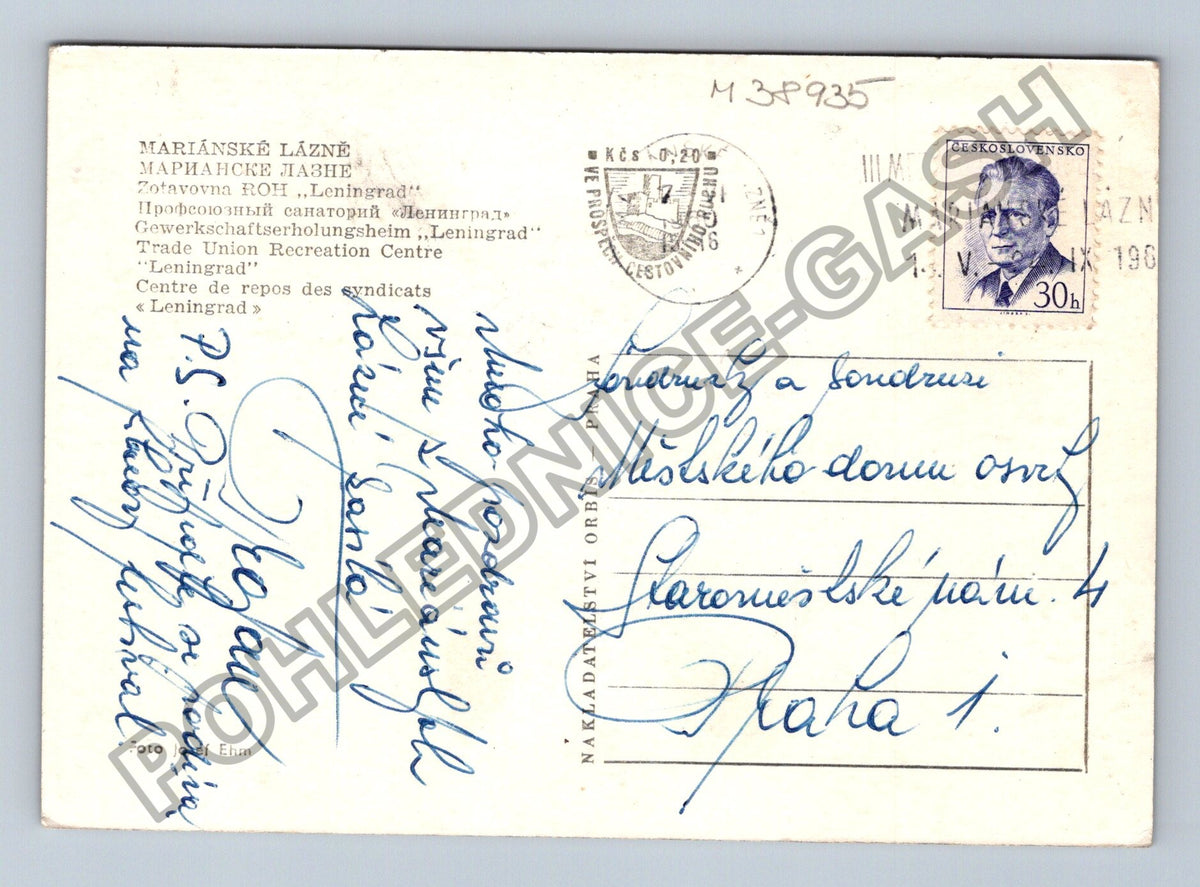 M 38935
MARIÁNSKÉ LÁZNĚ
МАРИАНСКЕ ЛАЗНЕ
Zotavovna ROH „Leningrad"
Профсоюзный санаторий «Ленинград»
Gewerkschaftserholungsheim „Leningrad"
Trade Union Recreation Centre
"Leningrad"
Centre de repos des syndicats
« Leningrad »
Kčs 0,20
VE PROSPĚCH CESTOVNÍHO RUCHU
ČESKOSLOVENSKO
30h
III
LÁZN
V. IX 196
Mnoho pozdravů
všem z Mariánských
Lázní zasílá
P.S. Přijďte se podívat
na festival.
Foto Josef Ehm
NAKLADATELSTVÍ ORBIS — PRAHA
a soudruzi
Městského domu osvěty
Staroměstské nám. 4
Praha 1.
POHLEDNICE-GASH